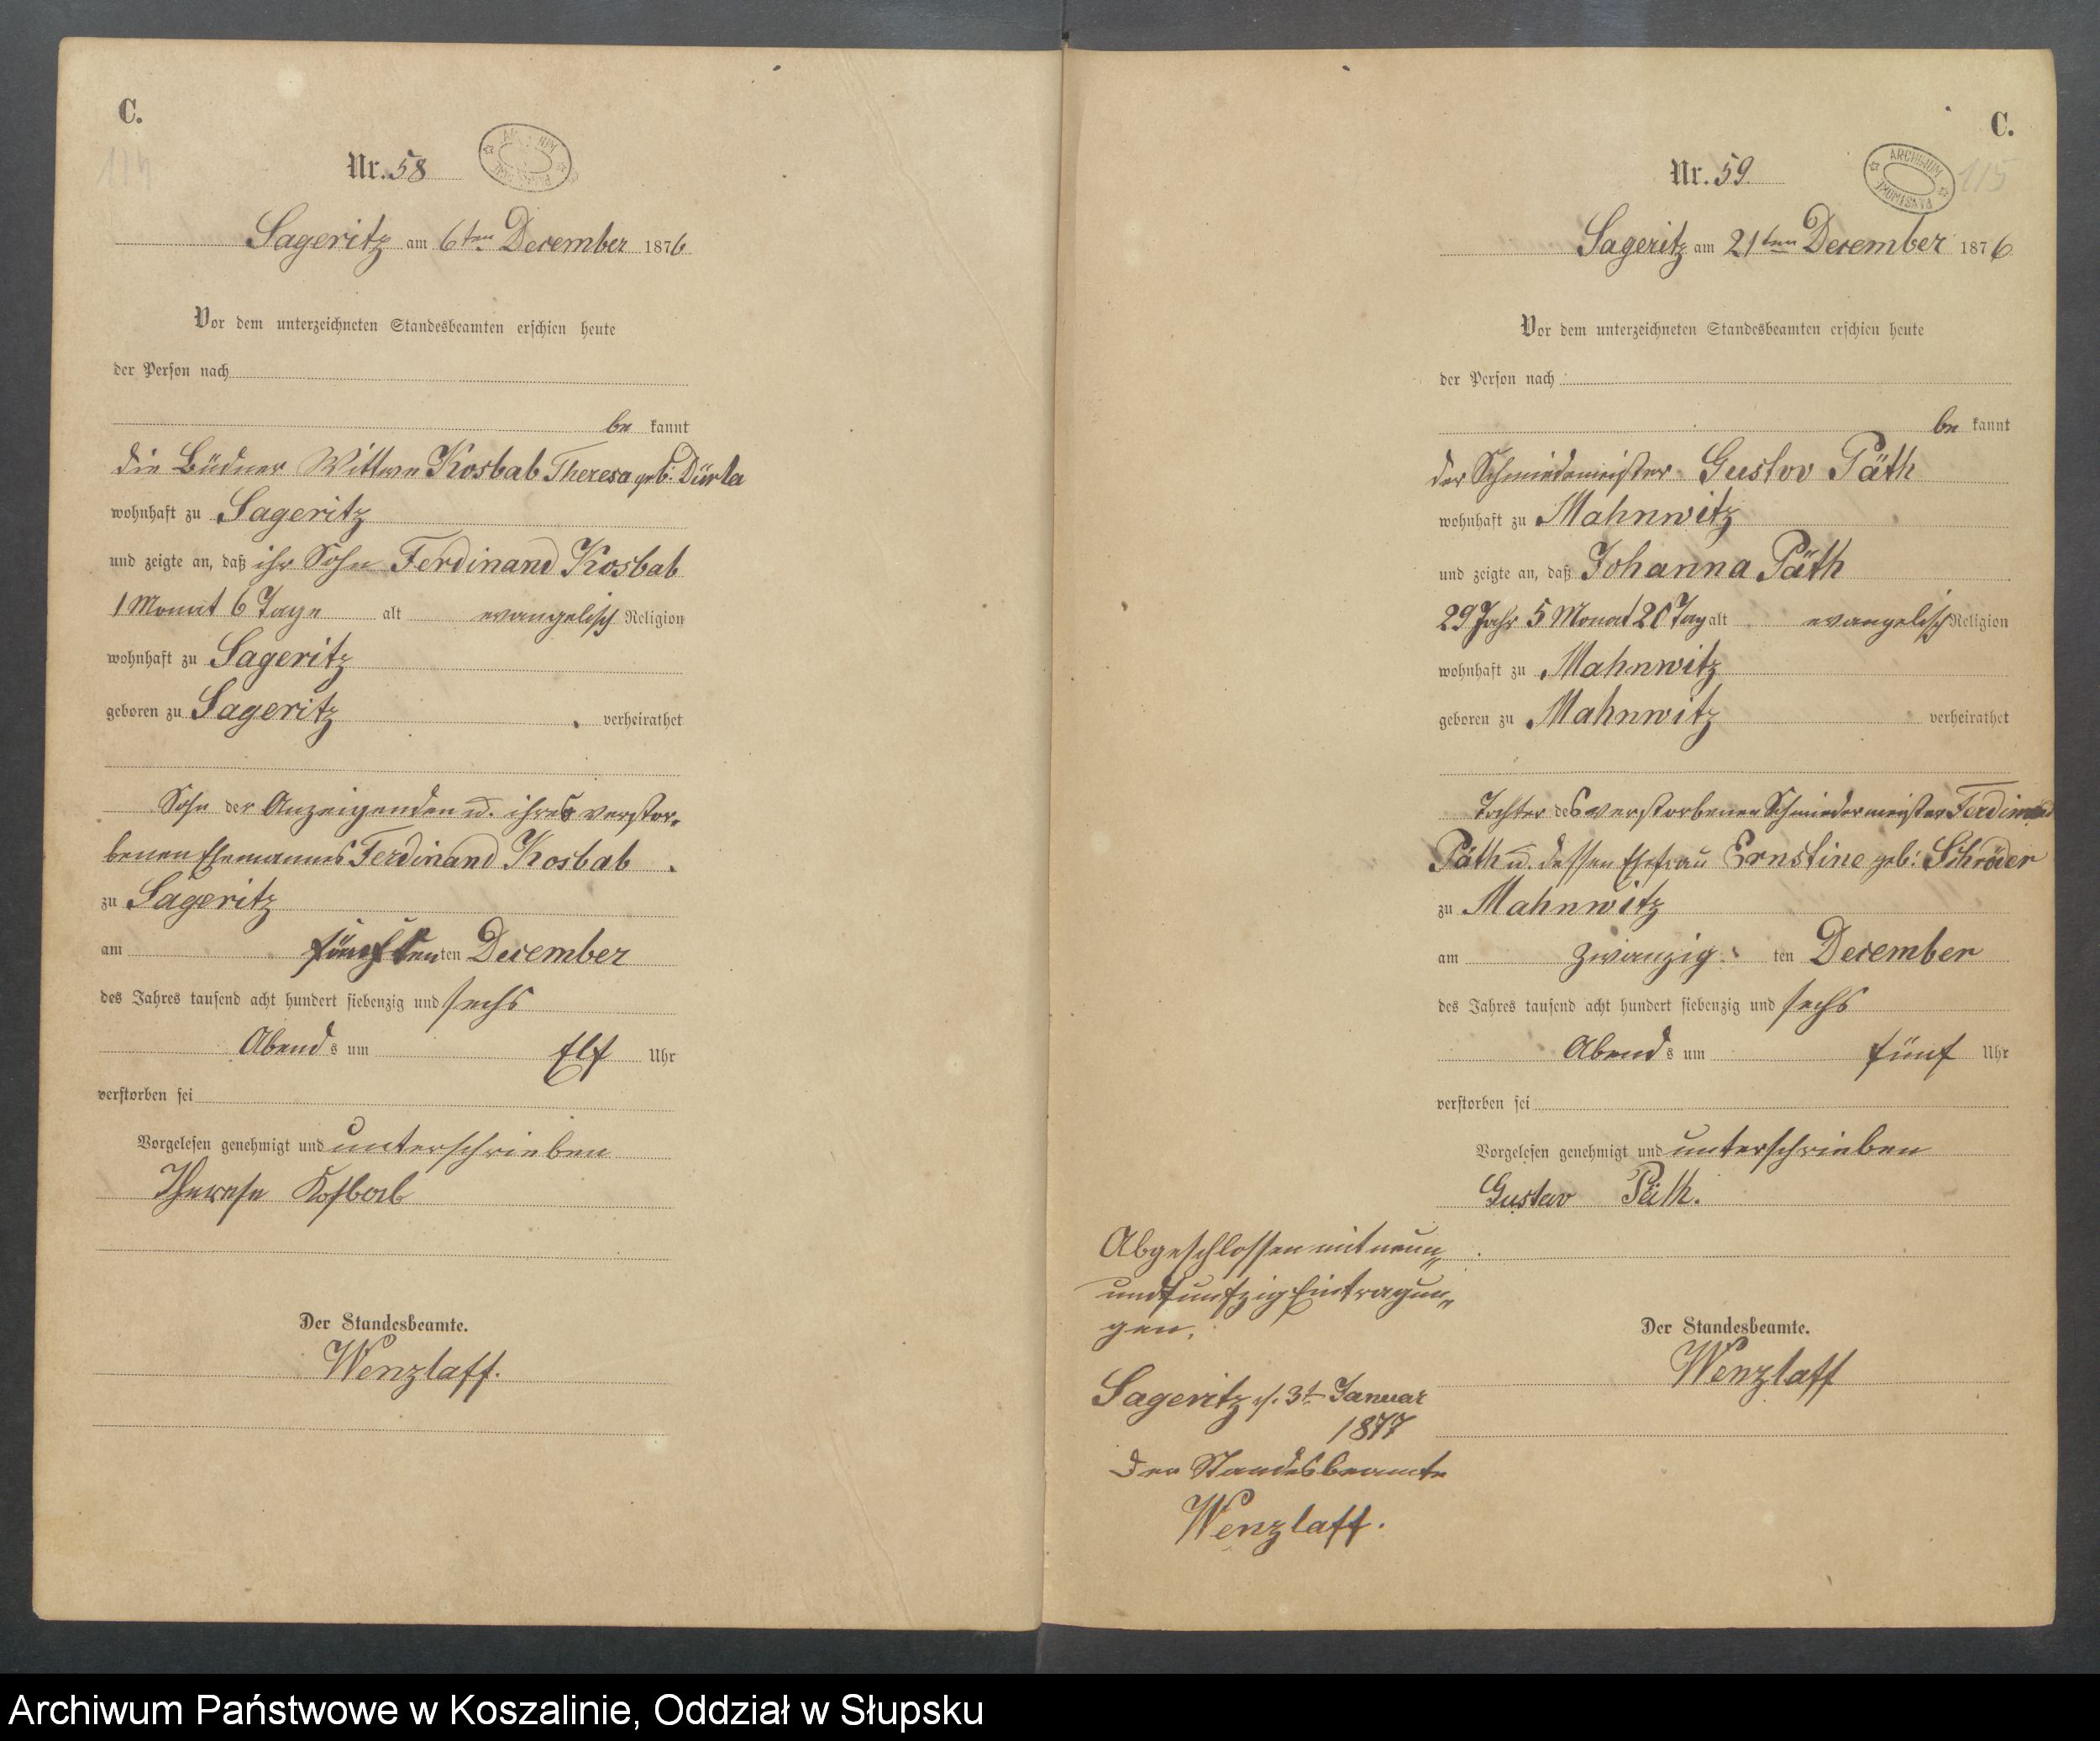 C.
114
Nr. 58
Sageritz am 6ten December 1876
Vor dem unterzeichneten Standesbeamten erschien heute
der Person nach
be kannt
die Büdner Wittwe Kosbab Theresa geb:
wohnhaft zu Sageritz
und zeigte an, daß ihr Sohn Ferdinand Kosbab
1 Monat 6 Tage alt evangelisch Religion
wohnhaft zu Sageritz
geboren zu Sageritz verheirathet
Sohn der Anzeigenden u. ihres verstor-
benen Ehemannes Ferdinand Kosbab
zu Sageritz
am fünften ten December
des Jahres tausend acht hundert siebenzig und sechs
Abend s um Elf Uhr
verstorben sei
Vorgelesen genehmigt und unterschrieben
Therese Kosbab
Der Standesbeamte.
Wenzlaff.
C.
115
Nr. 59
ARCHIWUM PAŃSTWOWE
Sageritz am 21ten December 1876
Vor dem unterzeichneten Standesbeamten erschien heute
der Person nach
be kannt
der Schmiedemeister Gustav Päth
wohnhaft zu Mahnwitz
und zeigte an, daß Johanna Päth
29 Jahr 5 Monat 20 Tag alt evangelisch Religion
wohnhaft zu Mahnwitz
geboren zu Mahnwitz verheirathet
Tochter des verstorbenen Schmiedemeister Ferdinand
Päth u. dessen Ehefrau Ernstine geb: Schröder
zu Mahnwitz
am zwanzig ten December
des Jahres tausend acht hundert siebenzig und sechs
Abend s um fünf Uhr
verstorben sei
Vorgelesen genehmigt und unterschrieben
Gustav Päth.
Der Standesbeamte.
Wenzlaff
Abgeschlossen mit neun
und funfzig Eintragun
gen.
Sageritz d. 3t Januar
1877
Der Standesbeamte
Wenzlaff.
Archiwum Państwowe w Koszalinie, Oddział w Słupsku